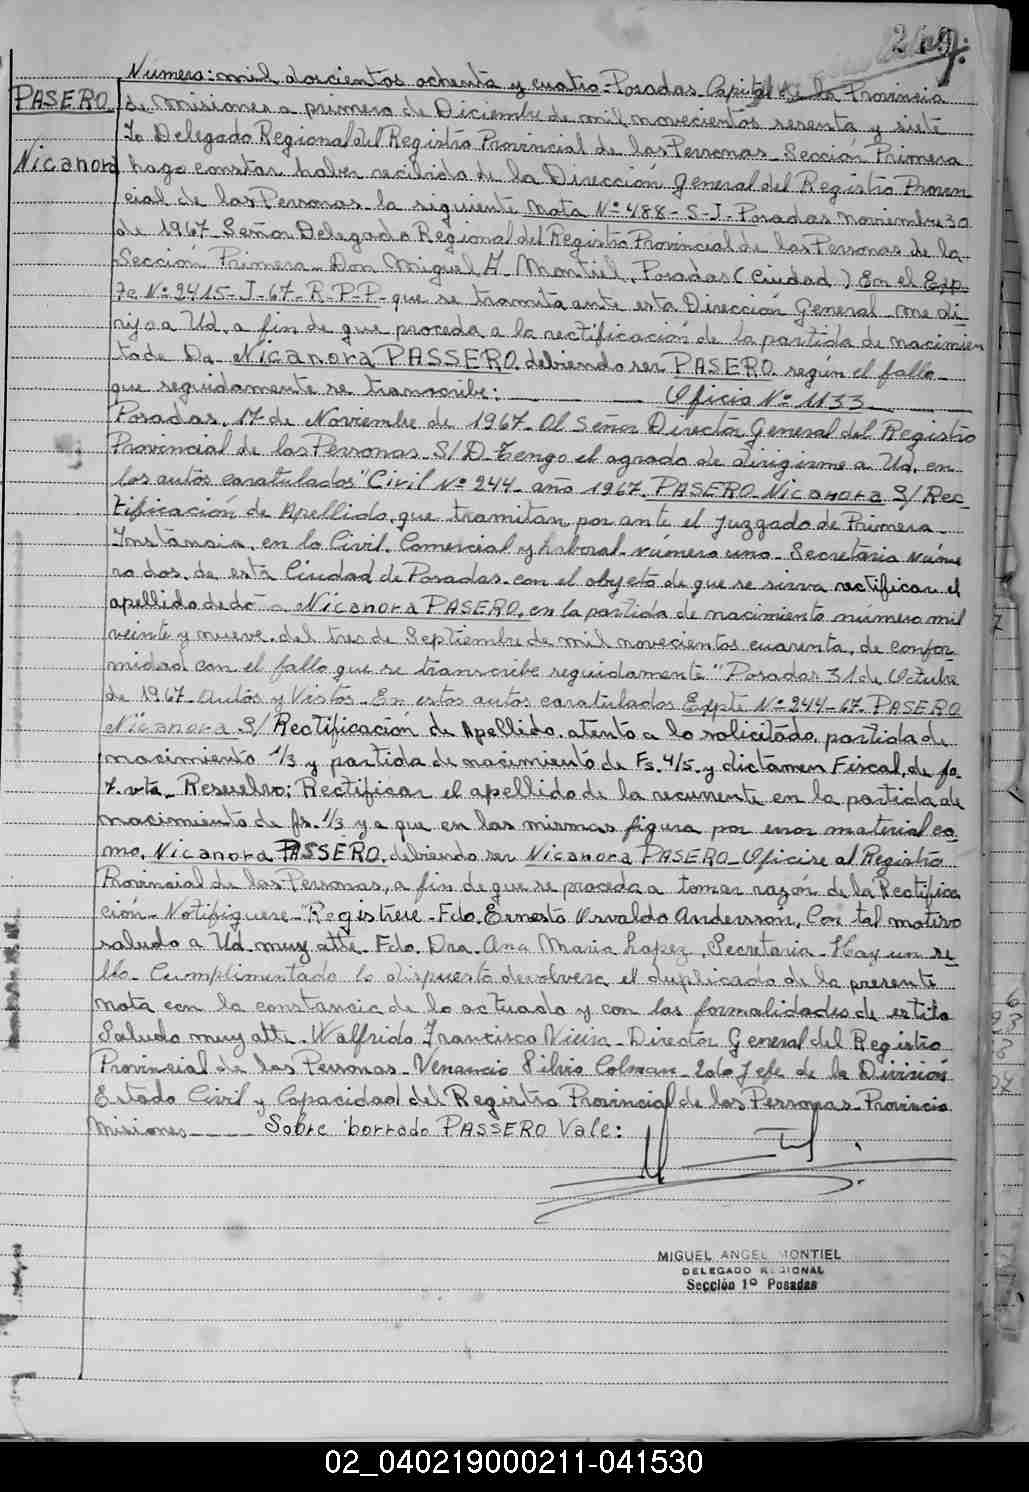 249.
Numero: mil doscientos ochenta y cuatro - Posadas Capital de la Provincia
PASERO
de Misiones a primero de Diciembre de mil novecientos sesenta y siete
Yo Delegado Regional del Registro Provincial de las Personas Sección Primera
Nicanora
hago constar haber recibido de la Dirección General del Registro Provin
cial de las Personas la seguiente Nota Nº 488-S-J- Posadas Noviembre 30
de 1967 Señor Delegado Regional del Registro Provincial de las Personas de la
Sección Primera - Don Miguel A. Montiel, Posadas (Ciudad) En el Exp.
Nº 2415-J-67-R-P-P- que se tramita ante esta Dirección General me di
rijo a Ud. a fin de que proceda a la rectificación de la partida de nacimien
to de Da Nicanora PASSERO, debiendo ser PASERO, según el fallo
que seguidamente se transcribe: ___ ___ Oficio Nº 1133 ___
Posadas, 17 de Noviembre de 1967. Al Señor Director General del Registro
Provincial de las Personas S/D Tengo el agrado de dirigirme a Ud. en
los autos caratulados "Civil Nº 244 - año 1967. PASERO Nicanora S/ Rec
tificación de Apellido, que tramitan por ante el Juzgado de Primera
Instancia, en lo Civil, Comercial y Laboral número uno Secretaria núme
ro dos, de esta Ciudad de Posadas con el objeto de que se sirva rectificar el
apellido de da Nicanora PASERO, en la partida de nacimiento número mil
veinte y nueve, del tres de Septiembre de mil novecientos cuarenta, de confor
midad con el fallo que se transcribe seguidamente "Posadas 31 de Octubre
de 1967. Autos y Vistos - En estos autos caratulados Expte Nº 244-67. PASERO
Nicanora S/ Rectificación de Apellido. atento a lo solicitado, partida de
nacimiento 1/3 y partida de nacimiento de Fs. 4/5. y dictamen Fiscal, de fo.
7. vta - Resuelvo: Rectificar el apellido de la recurrente en la partida de
nacimiento de fs. 1/3 ya que en las mismas figura por error material co
mo, Nicanora PASSERO, debiendo ser Nicanora PASERO - Oficise al Registro
Provincial de las Personas, a fin de que se proceda a tomar razón de la Rectifica
ción - Notifiquese - "Registrese - Fdo. Ernesto Osvaldo Andersson, Con tal motivo
saludo a Ud. muy atte. Fdo. Dra. Ana Maria Lopez, Secretaria - Hay un se
llo - Cumplimentado lo dispuesto devolvera el duplicado de la presente
nota con la constancia de lo actuado y con las formalidades de estilo
Saludo muy atte. Walfrido Francisco Vieira - Director General del Registro
Provincial de las Personas - Venancio Silvio Colman - 2do Jefe de la División
Estado Civil y Capacidad del Registro Provincial de las Personas - Provincia
Misiones ___ Sobre borrado PASSERO Vale:
MIGUEL ANGEL MONTIEL
DELEGADO REGIONAL
Sección 1º Posadas
02_040219000211-041530